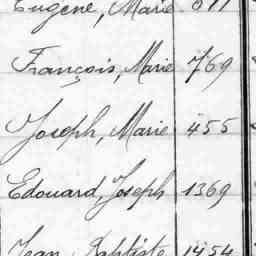 Eugène, Marie 611
François, Marie 769
Joseph, Marie 455
Edouard, Joseph 1369
Jean Baptiste 1454